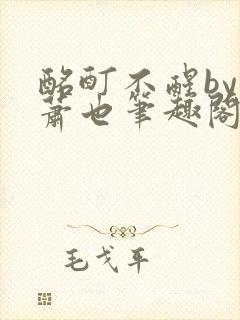 酩酊不醒by
萧也笔趣阁
毛戈平